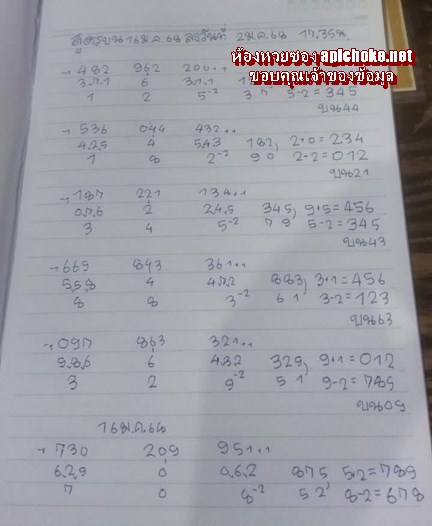 สูตรบน 16 ม.ค.68 ลงวันที่ 2 ม.ค.68 17.35น.
ห้องหวยซอง apichoke.net
ขอบคุณเจ้าของข้อมูล
482 962 200..
3.7.1 6 3.7.1
1 2 5-2 3 7 5-2=345
บน44
536 044 432..
4.2.5 4 5.4.3 182, 2.0=234
1 8 2-2 9 0 2-2=012
บน21
187 221 134..
0.7.6 2 2.4.5 345, 9.5=456
3 4 5-2 7 9, 5-2=345
บน43
669 843 361..
5.5.8 4 4.7.2 883, 3.1=456
8 8 3-2 6 1, 3-2=123
บน63
097 863 321..
9.8.6 6 4.3.2 329, 9.1=012
3 2 9-2 5 1, 9-2=789
บน09
16 ม.ค.68
730 209 951..
6.2.9 0 0.6.2 875 5.2=789
7 0 8-2 5 2, 8-2=678